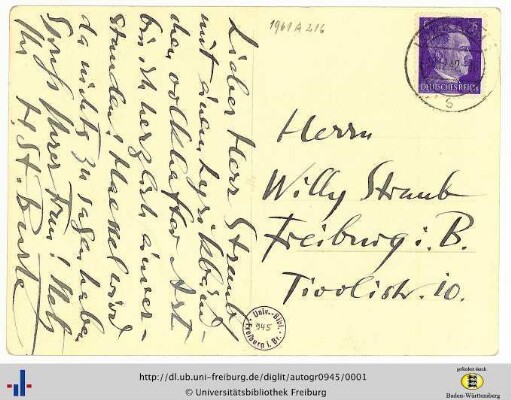 1961 A 216
Lieber Herr Straub,
mit einem lyr. Kbänd-
chen volkhafter Art
bin ich herzlich einver-
standen, Haessel wird
da nichts zu sagen haben
Gruß Ihrer Frau!
Ihr H. St. Burte
DEUTSCHES REICH
Herrn
Willy Straub
Freiburg i. B.
Tivolistr. 10.
Univ.-Bibl.
945
Freiburg i. Br.
http://dl.ub.uni-freiburg.de/diglit/autogr0945/0001
© Universitätsbibliothek Freiburg
gefördert durch
Baden-Württemberg